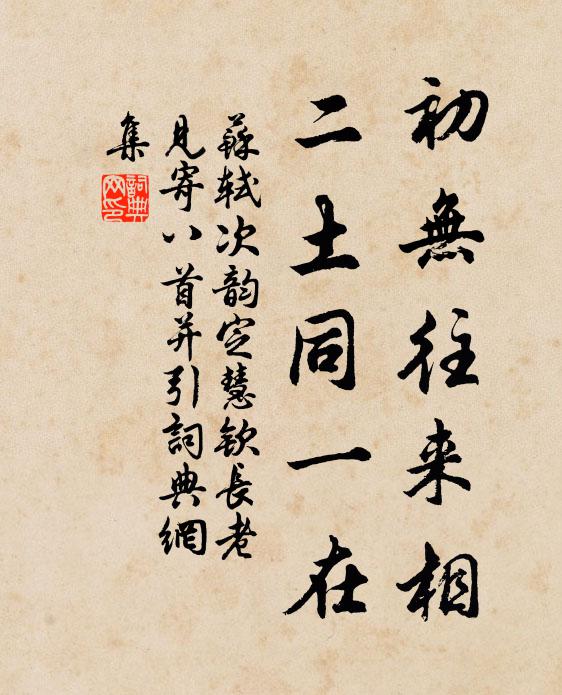 初無往来相
二土同一在
蘇軾次韵定慧欽長老
見寄八首并引詞典網
集
詞典
网印